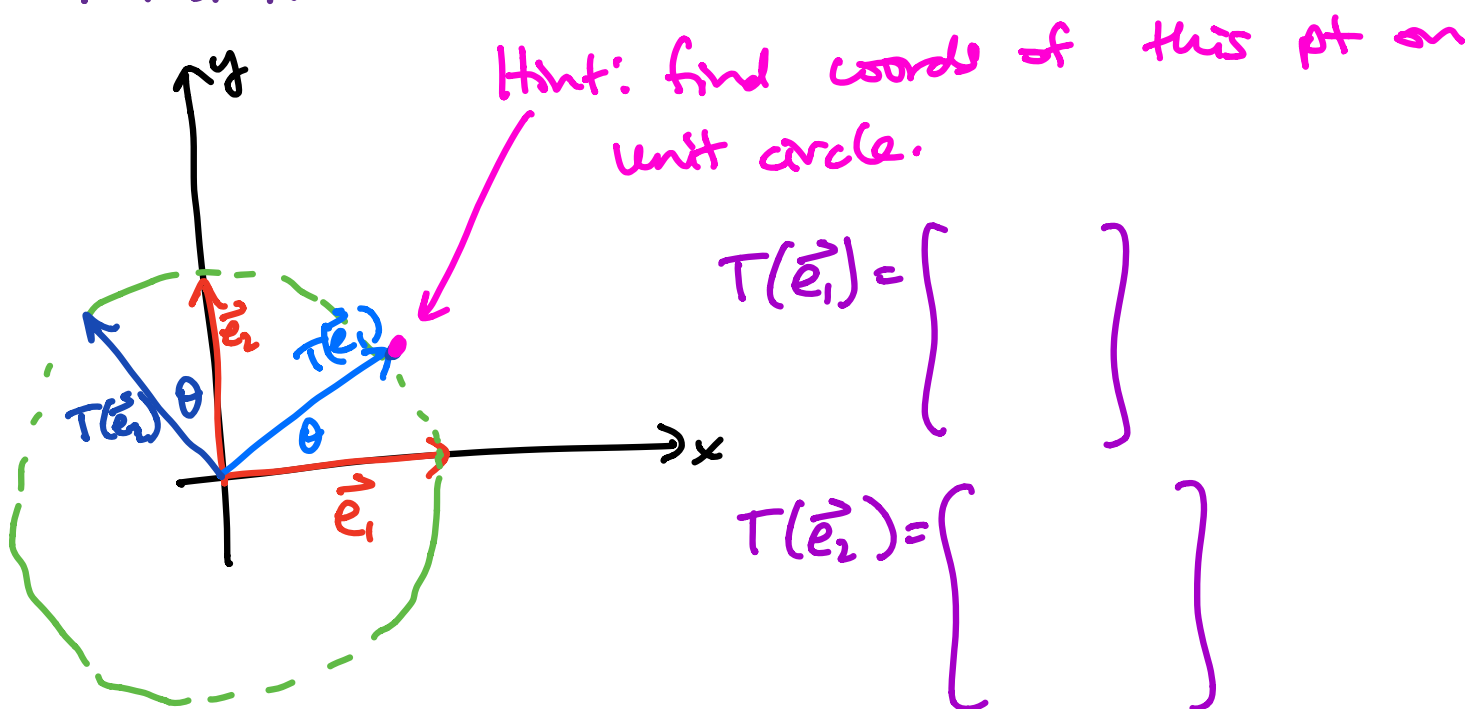 y
Hint: find coords of this pt on
unit circle.
T(e⃗₁) =
e⃗₂
T(e⃗₁)
T(e⃗₂)
θ
θ
x
e⃗₁
T(e⃗₂) =